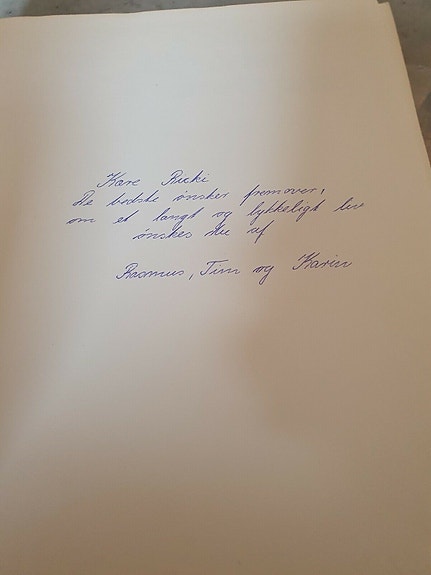 Kære Ricki
De bedste ønsker fremover,
om et langt og lykkeligt liv
ønskes du af
Rasmus, Tim og Karin